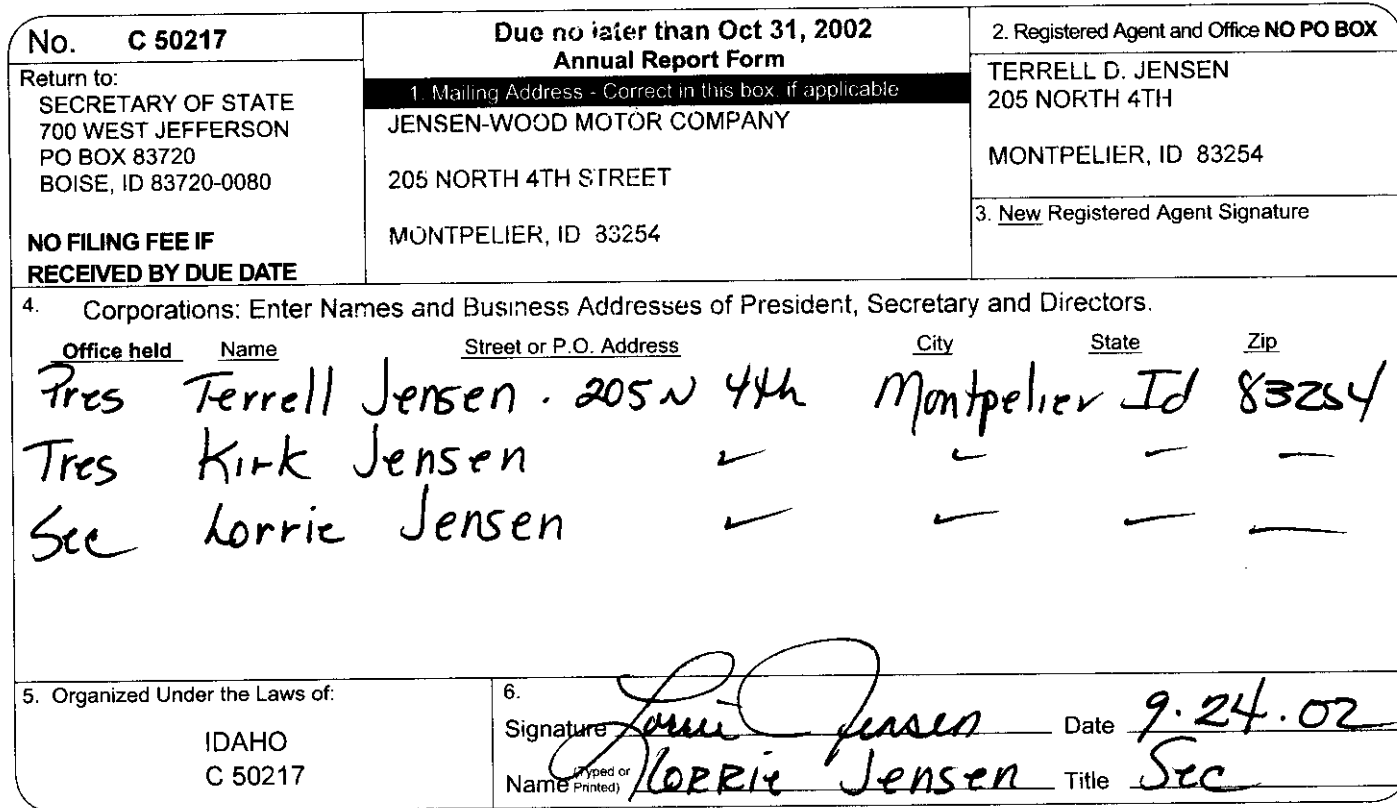 No. C 50217
Return to:
SECRETARY OF STATE
700 WEST JEFFERSON
PO BOX 83720
BOISE, ID 83720-0080
NO FILING FEE IF
RECEIVED BY DUE DATE
Due no later than Oct 31, 2002
Annual Report Form
1. Mailing Address - Correct in this box, if applicable
JENSEN-WOOD MOTOR COMPANY
205 NORTH 4TH STREET
MONTPELIER, ID 83254
2. Registered Agent and Office NO PO BOX
TERRELL D. JENSEN
205 NORTH 4TH
MONTPELIER, ID 83254
3. New Registered Agent Signature
4. Corporations: Enter Names and Business Addresses of President, Secretary and Directors.
Office held Name Street or P.O. Address City State Zip
Pres Terrell Jensen . 205 N 4th Montpelier Id 83254
Tres Kirk Jensen
Sec Lorrie Jensen
5. Organized Under the Laws of:
IDAHO
C 50217
6.
Signature Lorrie Jensen Date 9.24.02
Name (Typed or Printed) LORRIE Jensen Title Sec